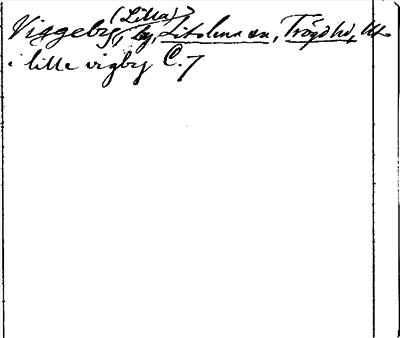 Viggeby, (Lilla) by, Litslena sn, Trögds hd, Upl.
i lille vigby C. 7